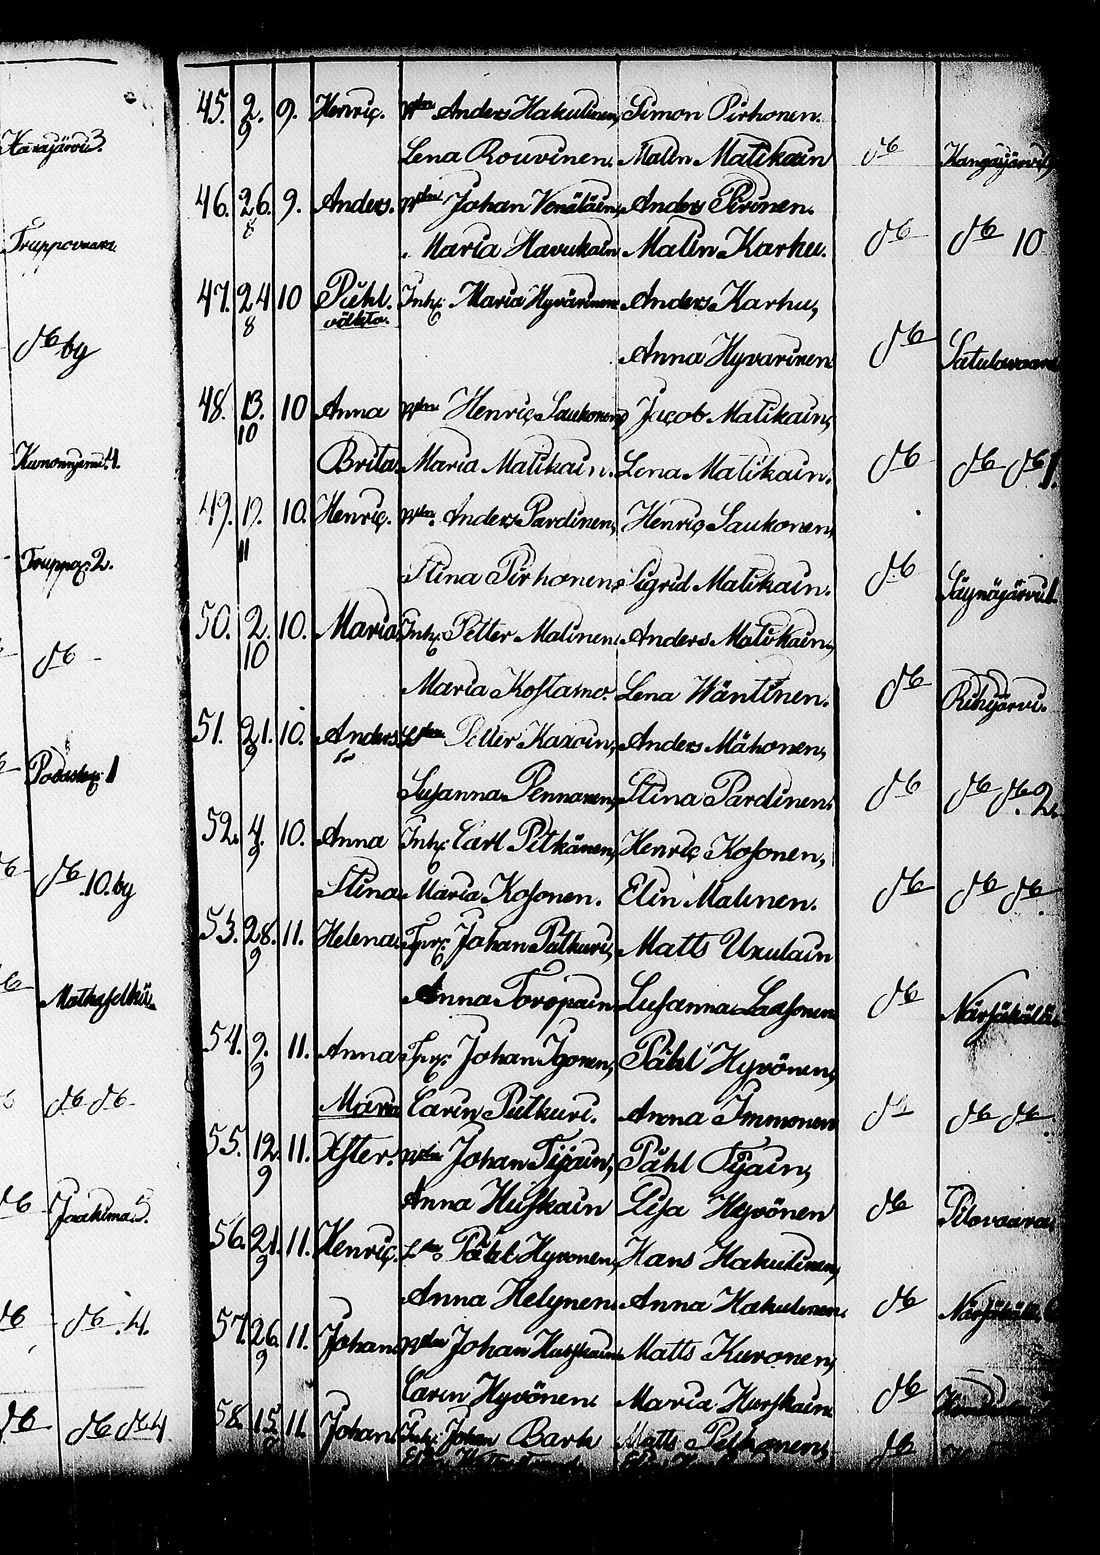 Karajärvi 3.
Truppovaara
do by
Kumonniemi 1.
Truppo: 2.
do
1
do 10. by
do do
Jaakima 5.
do do 4.
do do do 4
45. 2/9 9. Henric. Anders Hakulinen, Simon Pirhonen.
Lena Rouvinen. Malin Matikain do Kangasjärvi
46. 26/8 9. Anders. Johan Venäläin, Anders Pironen.
Maria Havukain Malin Karhu. do do 10
47. 24/8 10 Påhl. Inh: Maria Hyvärinen Anders Karhu,
oäkta.
Anna Hyvarinen do Satulavaara
48. 13/10 10 Anna Henric Saukonen, Jacob Matikain,
Brita Maria Matikain. Lena Matikain. do do do 1.
49. 19/11 10. Henric. Anders Pardinen, Henric Saukonen,
Stina Pirhonen Sigrid Matikain. do Säynäjärvi 1
50. 2/10 10. Maria Inh: Petter Malinen Anders Matikain,
Maria Kostamo. Lena Wäntinen. do Riihijärvi.
51. 21/9 10. Anders Petter Karvin, Anders Mähönen,
Susanna Pennanen, Stina Pardinen. do do do 2.
52. 4/9 10. Anna Inh: Carl Pitkänen, Henric Kosonen,
Stina Maria Kosonen. Elin Malinen. do do do.
53. 28/9 11. Helena Johan Putkuri, Matts Uxulain
Anna Toropain Susanna Laasonen do Närsäkälä
54. 9/9 11. Anna Johan Igonen, Påhl Hyvönen,
Maria Carin Putkuri. Anna Immonen do do do.
55. 12/9 11. Xster. Johan Tijain, Påhl Tijain,
Anna Huskain Lisa Hyvönen do Pilovaara
56. 21/9 11. Henric. Påhl Hyvonen, Hans Hakulinen,
Anna Helynen Anna Hakulinen. do Närsäkälä 6
57. 26/9 11. Johan Johan Hurskain Matts Kuronen,
Carin Hyvönen. Maria Hurskain do
58. 15 11. Johan Inh: Johan Bark Matts Pelkonen,
do